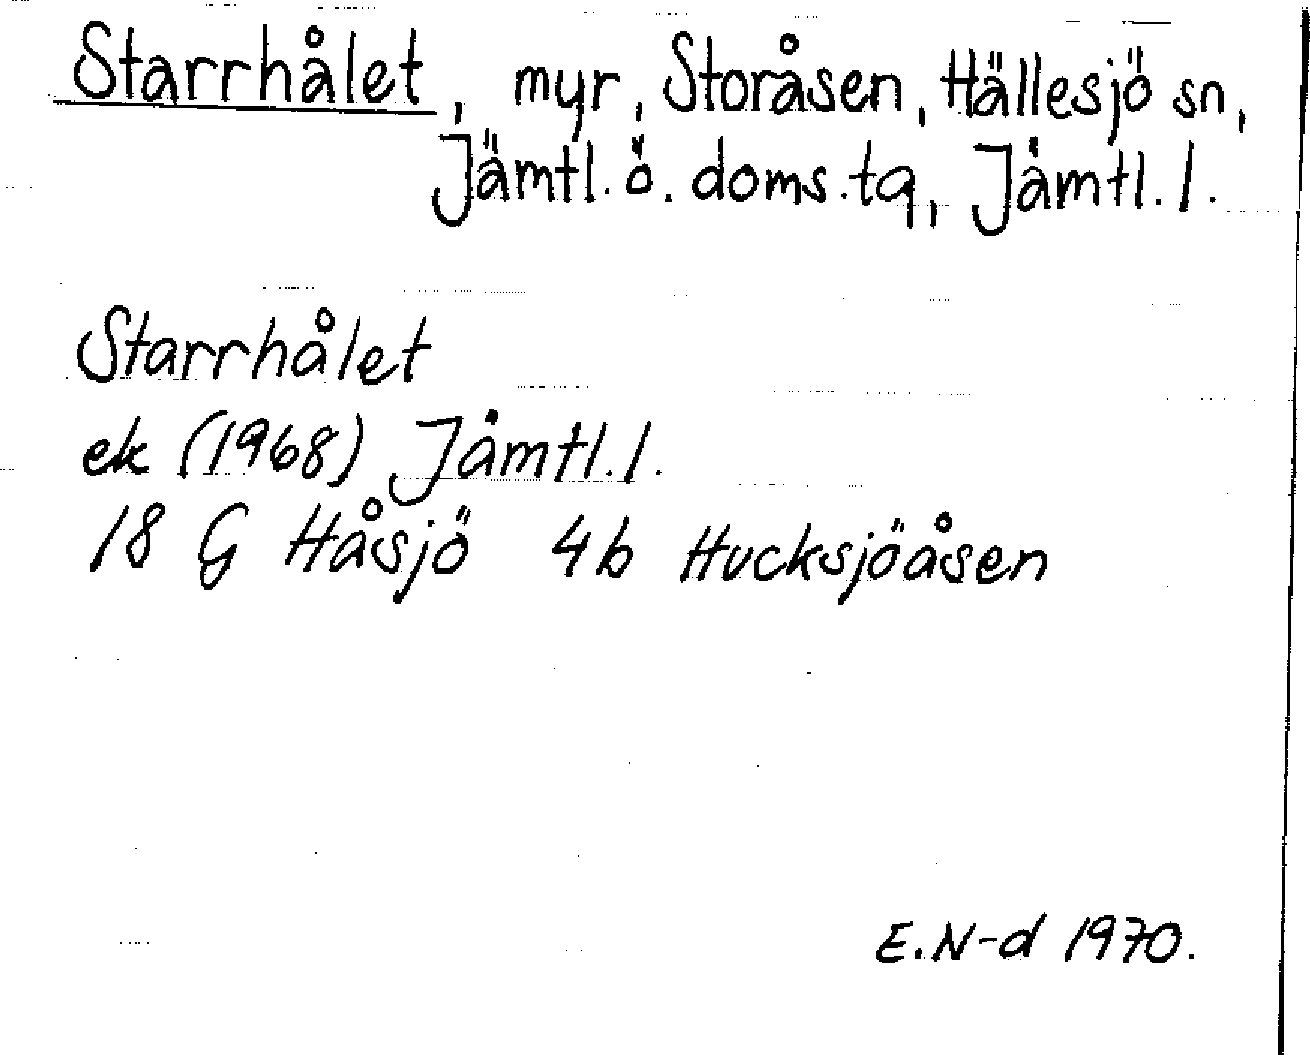 Starrhålet, myr, Storåsen, Hällesjö sn,
Jämtl. ö. doms.tq, Jämtl. l.
Starrhålet
ek (1968) Jämtl. l.
18 G Håsjö 4b Hucksjöåsen
E. N-d 1970.